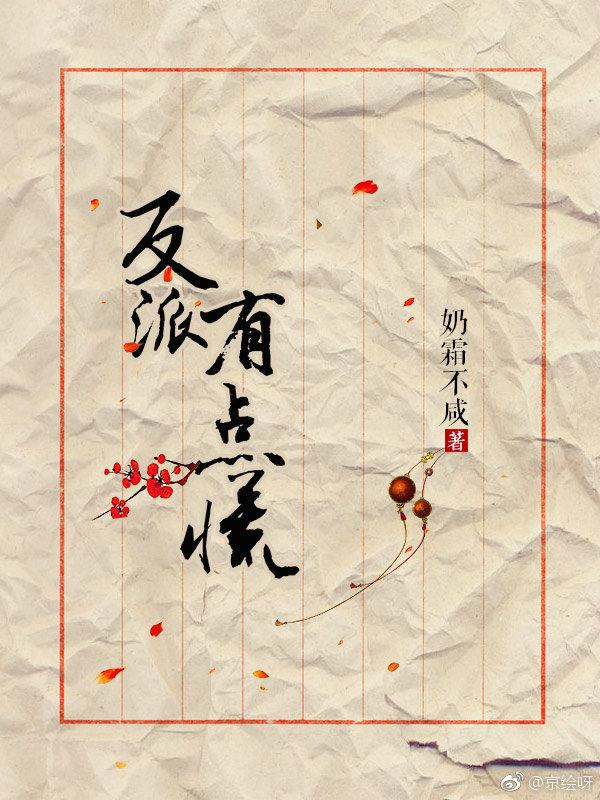 反派
有点慌
奶霜不咸
著
@京绘呀